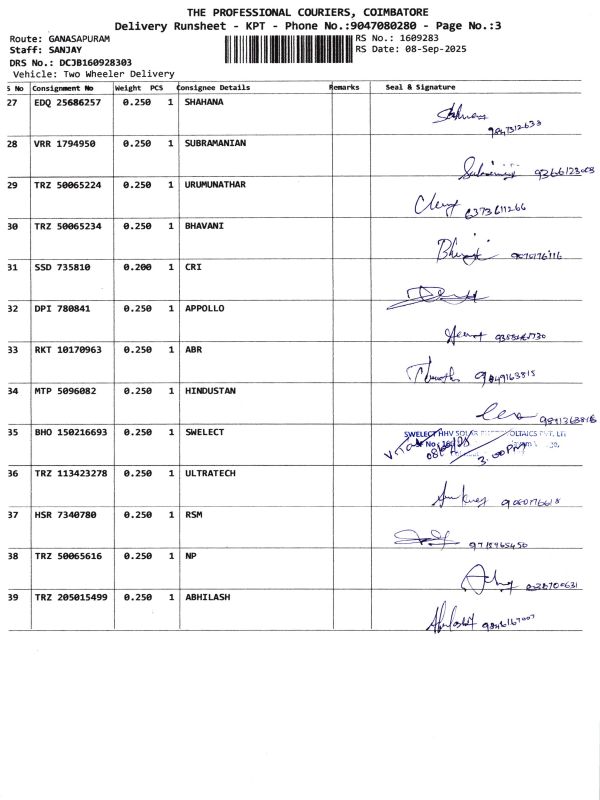 THE PROFESSIONAL COURIERS, COIMBATORE
Delivery Runsheet - KPT - Phone No.:9047080280 - Page No.:3
Route: GANASAPURAM
RS No.: 1609283
Staff: SANJAY
RS Date: 08-Sep-2025
DRS No.: DCJB160928303
Vehicle: Two Wheeler Delivery
S No Consignment No Weight PCS Consignee Details Remarks Seal & Signature
27 EDQ 25686257 0.250 1 SHAHANA
28 VRR 1794950 0.250 1 SUBRAMANIAN
29 TRZ 50065224 0.250 1 URUMUNATHAR
30 TRZ 50065234 0.250 1 BHAVANI
31 SSD 735810 0.200 1 CRI
32 DPI 780841 0.250 1 APPOLLO
33 RKT 10170963 0.250 1 ABR
34 MTP 5096082 0.250 1 HINDUSTAN
35 BHO 150216693 0.250 1 SWELECT SWELECT HHV SOLAR
3.00 PM
36 TRZ 113423278 0.250 1 ULTRATECH
37 HSR 7340780 0.250 1 RSM
38 TRZ 50065616 0.250 1 NP
39 TRZ 205015499 0.250 1 ABHILASH